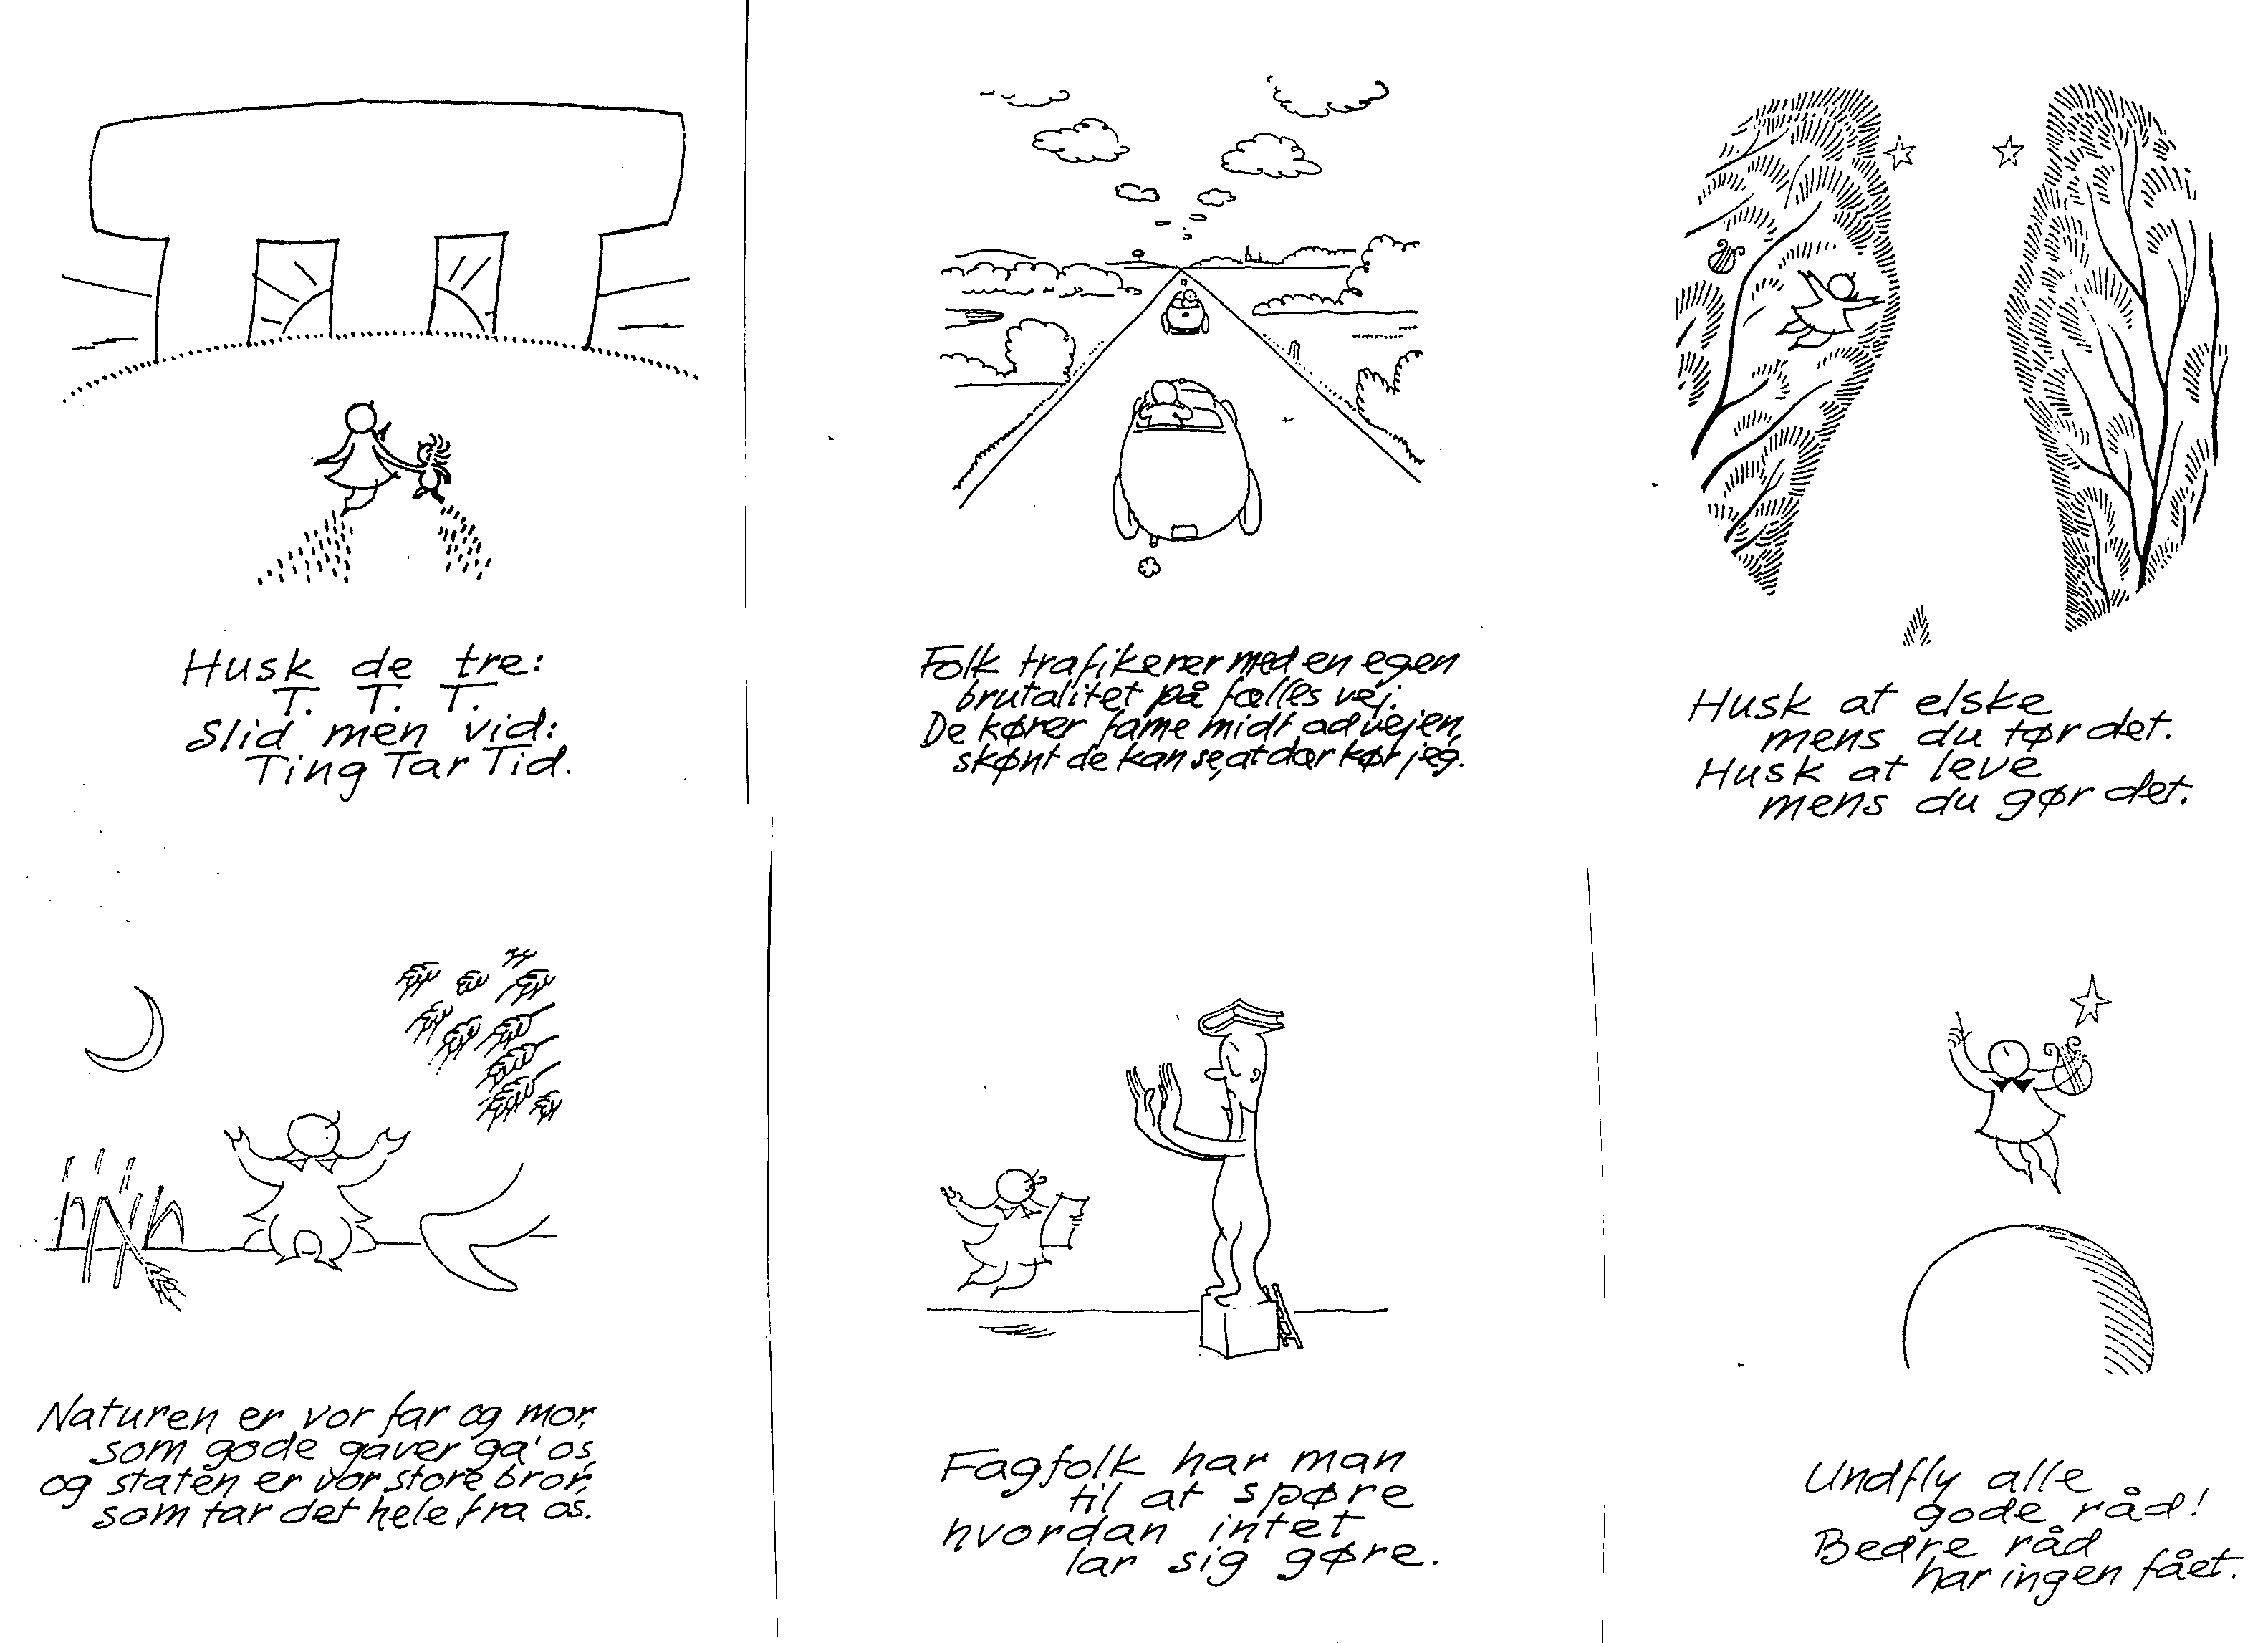 Husk de tre:
T. T. T.
Slid men vid:
Ting Tar Tid.
Folk trafikerer med en egen
brutalitet på fælles vej.
De kører fame midt ad vejen,
skønt de kan se, at dær kør jeg.
Husk at elske
mens du tør det.
Husk at leve
mens du gør det.
Naturen er vor far og mor,
som gode gaver ga' os,
og staten er vor store bror,
som tar det hele fra os.
Fagfolk har man
til at spøre
hvordan intet
lar sig gøre.
Undfly alle
gode råd!
Bedre råd
har ingen fået.